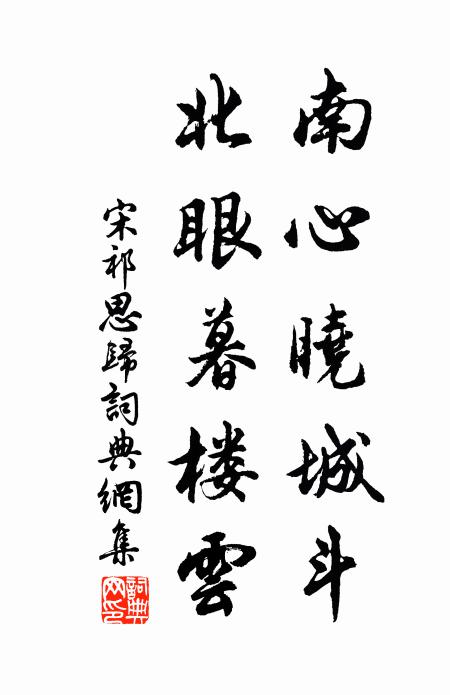 南心曉城斗
北眼暮楼雲
宋祁思歸詞典網集
詞典网印